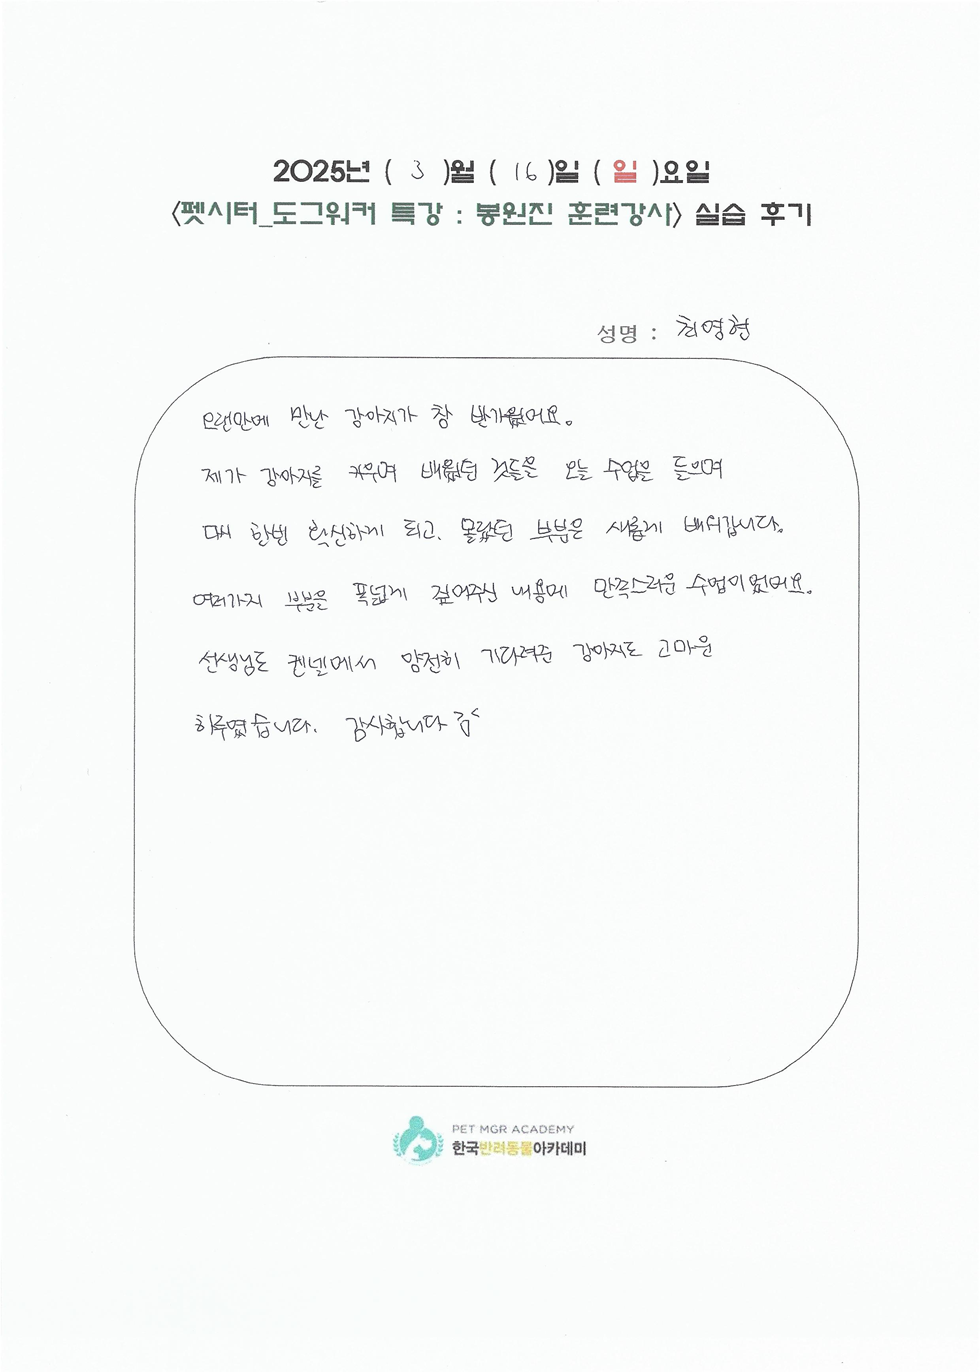 2025년 ( 3 )월 ( 16 )일 ( 일 )요일
<펫시터_도그워커 특강 : 봉원진 훈련강사> 실습 후기
성명 : 최영형
오랜만에 만난 강아지가 참 반가웠어요.
제가 강아지를 키우며 배웠던 것들을 오늘 수업을 들으며
다시 한번 확신하게 되고, 몰랐던 부분은 새롭게 배워갑니다.
여러가지 부분을 폭넓게 짚어주신 내용에 만족스러운 수업이었어요.
선생님도 켄넬에서 얌전히 기다려준 강아지도 고마운
하루였습니다. 감사합니다
PET MGR ACADEMY
한국반려동물아카데미